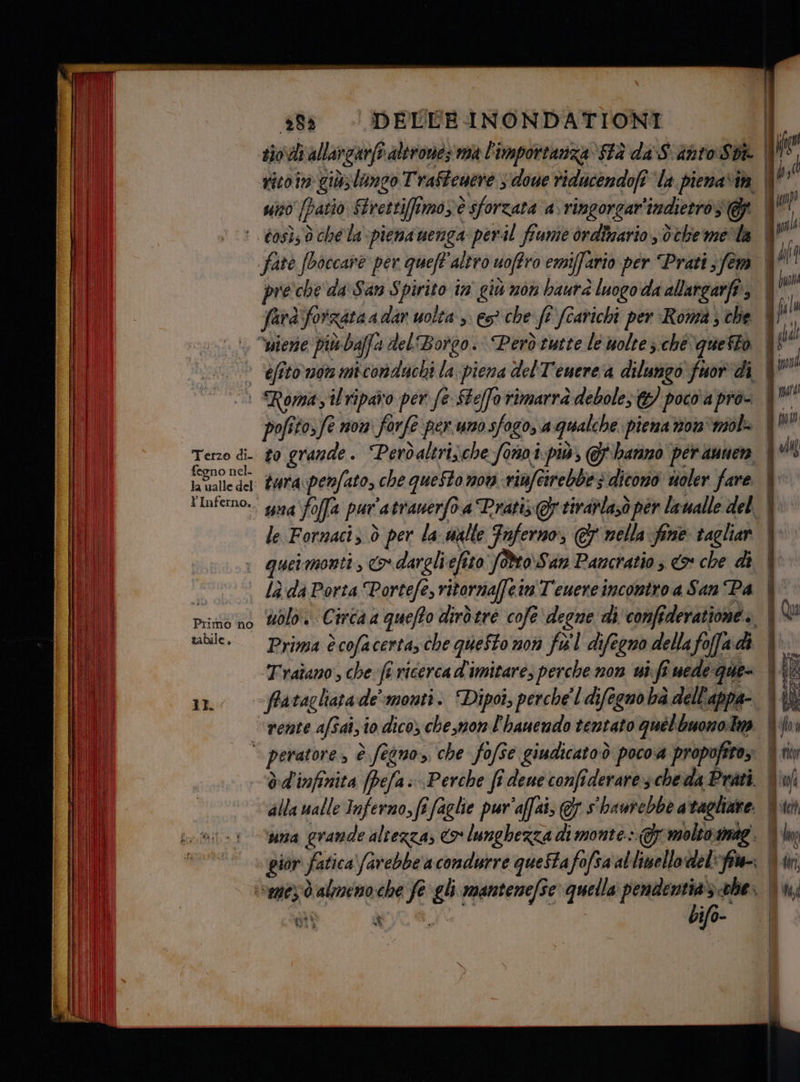 282 DELLE INONDATIONI
tio di allargarſi altroue; ma l'importanza ſtà da S. anto Spi-
rito in giù, lungo Traſteuere; doue riducendoſi la piena in
uno ſpatio ſtrettiſſimo, è sforzata a ringorgar'indietro; &
così, ò che la piena uenga per il fiume ordinario, ò che me la
fate sboccare per queſt'altro uoſtro emiſſario per Prati; ſem
pre che da San Spirito in giù non haurà luogo da allargarſi,
farà forzata a dar uolta, & che ſi ſcarichi per Roma, che
uiene più baſſa del Borgo. Però tutte le uolte, che queſto
eſito non mi conduchi la piena del Teuere a dilungo fuor di
Roma, il riparo per ſe ſteſſo rimarrà debole, & poco a pro-
poſito, ſe non forſe per uno sfogo, a qualche piena non mol-
Terzo di-
ſegno nel-
la ualle del
l'Inferno.
to grande. Però altri, che ſono i più, & hanno per auuen
tura penſato, che queſto non riuſcirebbe; dicono uoler fare
una foſſa pur'atrauerſo a Prati; & tirarla, ò per la ualle del
le Fornaci, ò per la ualle Inferno, & nella fine tagliar
quei monti, & dargli eſito ſotto San Pancratio, & che di
là da Porta Porteſe, ritornaſſe in Teuere incontro a San Pa
Primo no
tabile.
uolo. Circa a queſto dirò tre coſe degne di conſideratione.
Prima è coſa certa, che queſto non fu'l diſegno della foſſa di
Traiano, che ſi ricerca d'imitare, perche non ui ſi uede que-
II.
ſta tagliata de' monti. Dipoi, perche'l diſegno hà dell'appa-
rente aſsai, io dico, che, non l'hauendo tentato quel buono Im
peratore, è ſegno, che foſse giudicato ò poco a propoſito,
ò d'infinita ſpeſa. Perche ſi deue conſiderare, che da Prati
alla ualle Inferno, ſi ſaglie pur'aſſai, & s'haurebbe a tagliare
una grande altezza, & lunghezza di monte: & molto mag
gior fatica ſarebbe a condurre queſta foſsa al liuello del fiu-
me, ò almeno che ſe gli manteneſse quella pendentia, che
biſo-